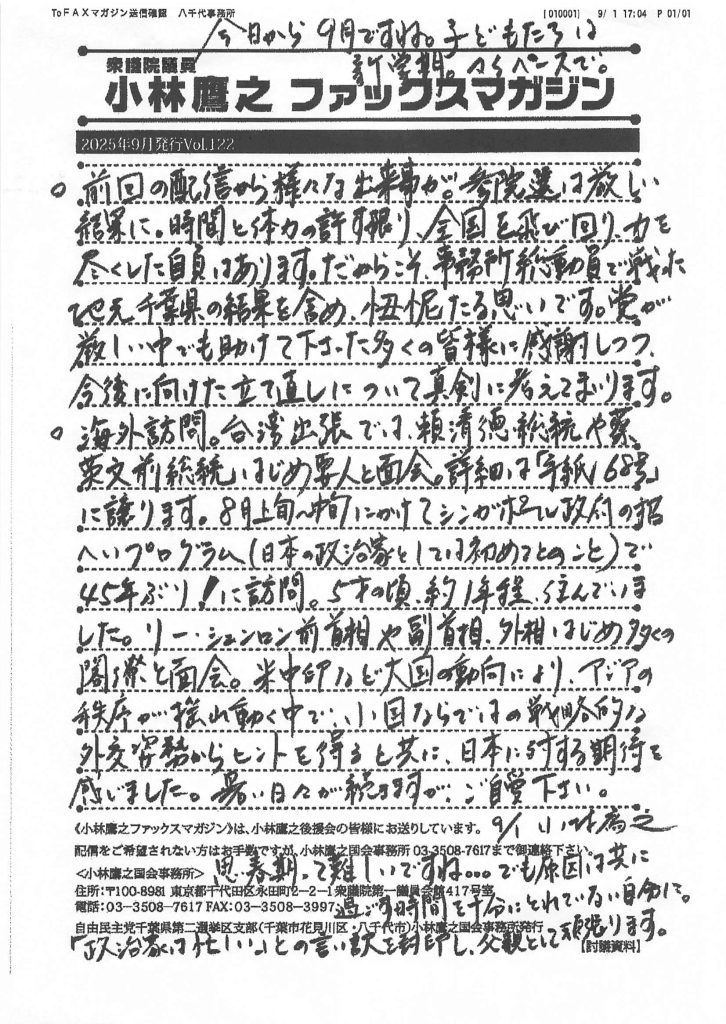 ToFAXマガジン送信確認 八千代事務所 [010001] 9/ 1 17:04 P 01/01
今日から9月ですね。子どもたちは
新学期。マイペースで。
衆議院議員
小林鷹之 ファックスマガジン
2025年9月発行Vol.122
○前回の配信から様々な出来事が。参院選は厳しい
結果に。時間と体力の許す限り、全国を飛び回り、力を
尽くした自負はあります。だからこそ、事務所総動員で戦った
地元千葉県の結果を含め、忸怩たる思いです。党が
厳しい中でも助けて下さった多くの皆様に感謝しつつ、
今後に向けた立て直しについて真剣に考えてまいります。
○海外訪問。台湾出張では、頼清徳総統や蔡
英文前総統はじめ要人と面会。詳細は「手紙」68号
に譲ります。8月上旬〜中旬にかけてシンガポール政府の招
へいプログラム(日本の政治家としては初めてとのこと)で
45年ぶり!に訪問。5才の頃、約1年程、住んでいま
した。リー・シェンロン前首相や副首相、外相はじめ多くの
閣僚と面会。米中印など大国の動向により、アジアの
秩序が揺れ動く中で、小国ならではの戦略的な
外交姿勢からヒントを得ると共に、日本に対する期待を
感じました。暑い日々が続きますが、ご自愛下さい。
《小林鷹之ファックスマガジン》は、小林鷹之後援会の皆様にお送りしています。 9/1 小林鷹之
配信をご希望されない方はお手数ですが、小林鷹之国会事務所 03-3508-7617まで御連絡下さい。
<小林鷹之国会事務所> 思春期って難しいですね…でも原因は共に
住所:〒100-8981 東京都千代田区永田町2-2-1衆議院第一議員会館417号室
電話:03-3508-7617 FAX:03-3508-3997 過ごす時間を十分にとれていない自分に。
自由民主党千葉県第二選挙区支部(千葉市花見川区・八千代市)小林鷹之国会事務所発行
「政治家は忙しい」との言い訳を封印し、父親として頑張ります。 【討議資料】